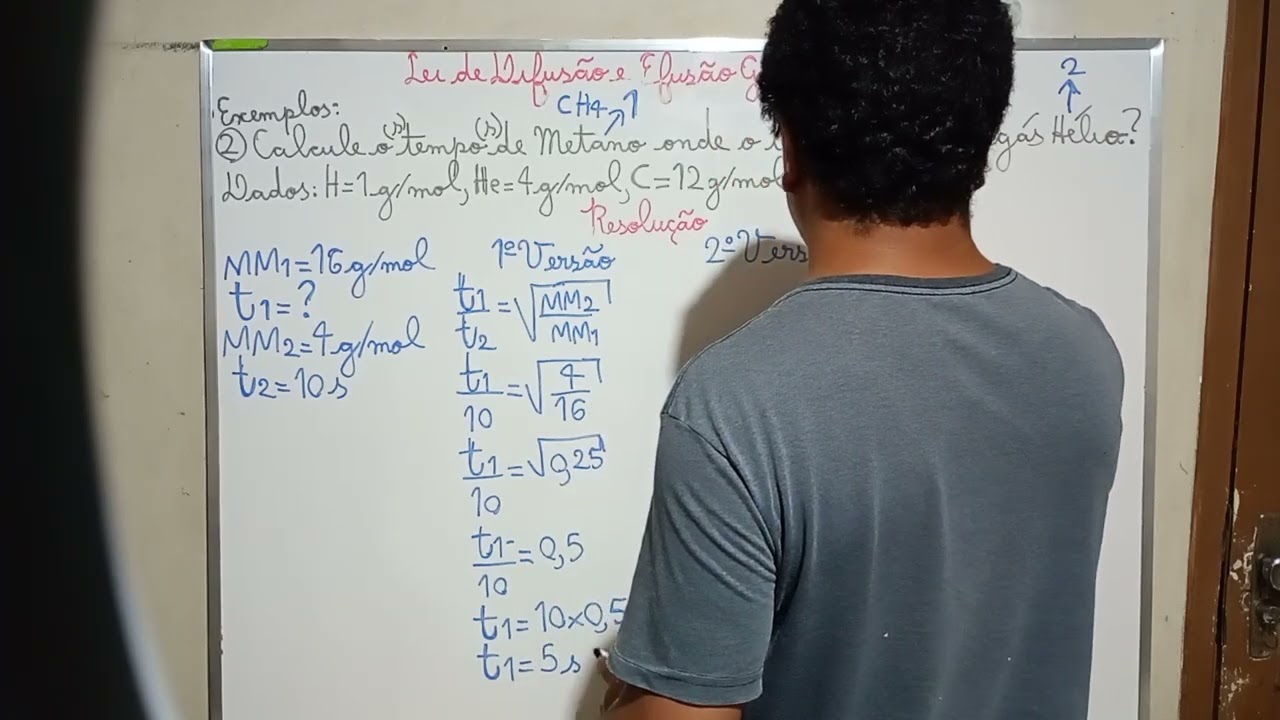 Lei de Difusão e Efusão G
2
CH4
Exemplos:
(s) (s)
② Calcule o tempo de Metano onde o gás Hélio?
Dados: H=1g/mol, He=4g/mol, C=12g/mol
Resolução
MM1=16g/mol
t1=?
MM2=4g/mol
t2=10s
1ª Versão
t1/t2=√MM2/MM1
t1/10=√4/16
t1/10=√0,25
t1/10=0,5
t1=10×0,5
t1=5s
2ª Vers